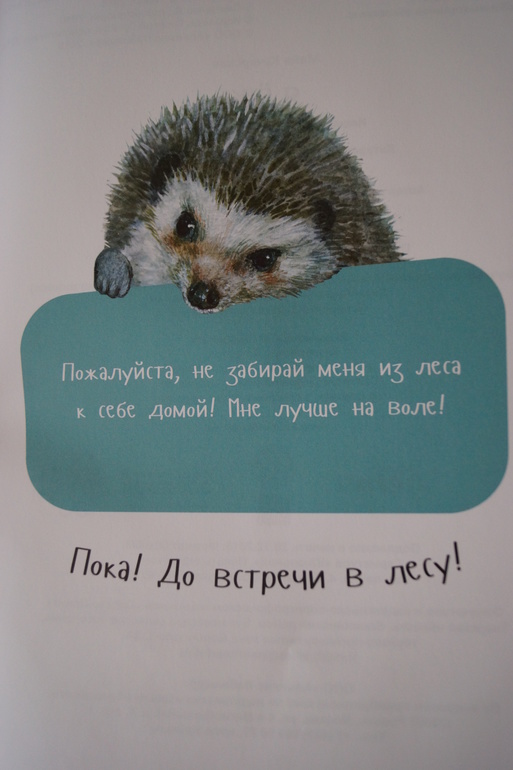 Пожалуйста, не забирай меня из леса
к себе домой! Мне лучше на воле!
Пока! До встречи в лесу!